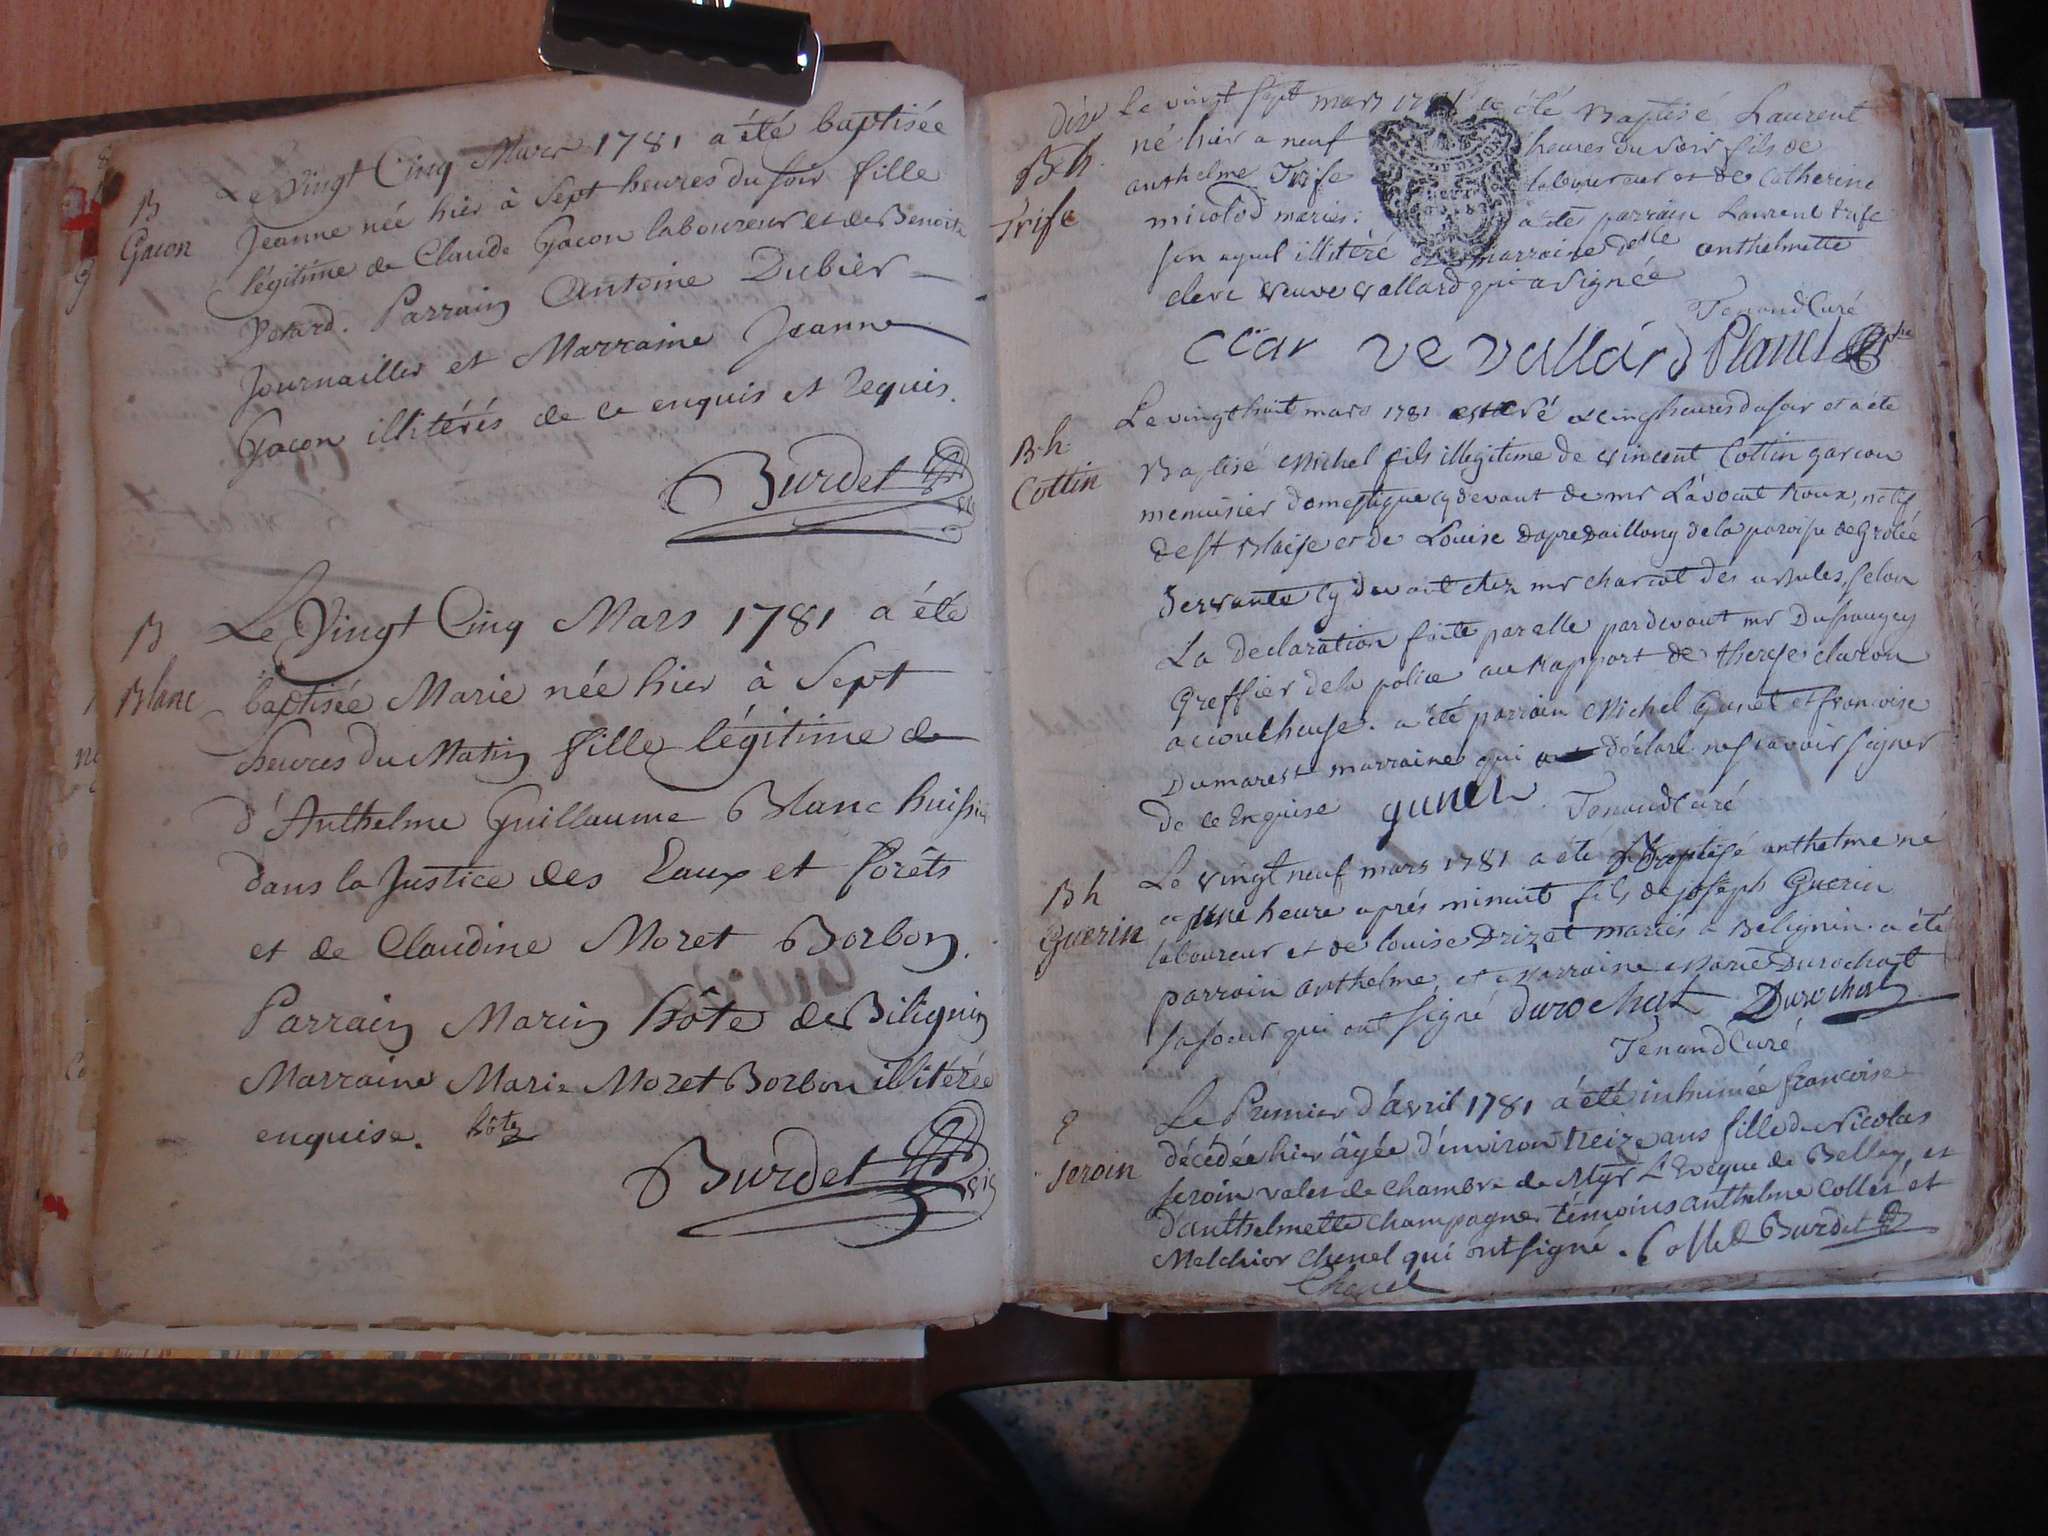 B
Gacon
Le Vingt Cinq Mars 1781 a été baptisée
Jeanne née hier à Sept heures du soir fille
légitime de Claude Gacon laboureur et de Benoite
Parrain Antoine Dubier
Journallier et Marraine Jeanne
Gacon illitérés de ce enquis et requis.
Burdet
B
Blanc
Le Vingt Cinq Mars 1781 a été
baptisée Marie née hier à Sept
heures du Matin fille légitime de
d'Anthelme Guillaume Blanc huissier
dans la Justice des Eaux et forêts
et de Claudine Moret Borbon.
Parrain Marin hôte de Bilignin
Marraine Marie Moret Borbon illitérée
enquise.
Burdet
B.h.
Trife
Le vingt sept mars 1781 a été Baptisé Laurent
né hier a neuf heures du soir fils de
anthelme Trife laboureur et de Catherine
micolod mariés. a été parrain Laurent trife
son ayeul illitéré et marraine delle anthelmette
clerc veuve vallard qui a signée
Tenand Curé
clar ve vallard Planel
B.h.
Cottin
Le vingt huit mars 1781 est né a cinq heures du soir et a été
Baptisé Michel fils illégitime de vincent Cottin garcon
menuisier domestique cy devant de mr L'avocat Roux, natif
de st Blaise et de Louise Dapredaillony de la paroisse de Grolée
Servante cy devant chez mr charcot des ursules, selon
La declaration faite par elle pardevant mr
Greffier de la police au Rapport de therese claron
acoucheuse. a été parrain Michel Gunet et francoise
Dumarest marraine qui a déclaré ne scavoir signer
de ce Enquise gunet Tenand Curé
B h
Guerin
Le vingt neuf mars 1781 a été Baptisé anthelme né
a une heure aprés minuit fils de joseph Guerin
laboureur et de louise Drizet mariés a Belignin. a été
parrain anthelme, et Marraine Marie Durochat
sa soeur qui ont signé durochat Durochat
Tenand Curé
Seroin
Le Premier d'avril 1781 a été inhumée francoise
décédée hier âgée d'environ treize ans fille de Nicolas
seroin valet de chambre de Mgr L'Evêque de Belley, et
d'anthelmette champagne témoins anthelme Collet, et
Melchior Chenel qui ont signé. Collet Burdet
Chenel